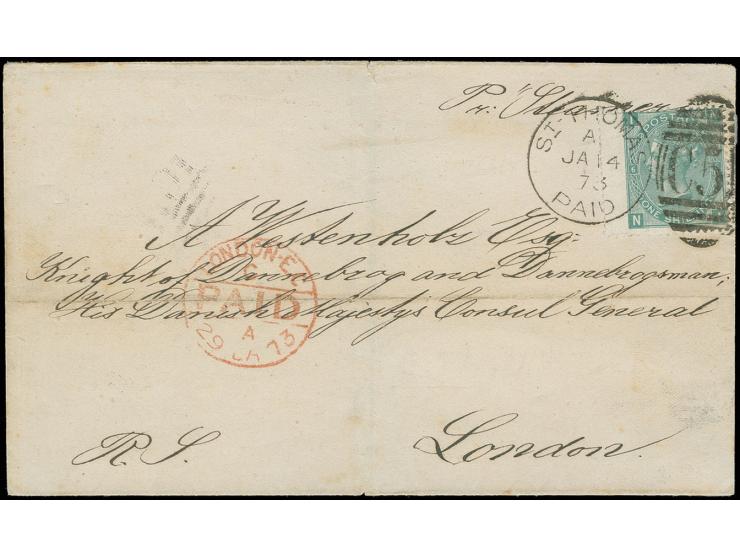 Pr: Steamer
ST. THOMAS
A
JA 14
73
PAID
POSTAGE
ONE SHILLING
N
6
C51
A Westenholz Esq:
Knight of Dannebrog and Dannebrogsman,
His Danish Majestys Consul General
LONDON-E.C
C
PAID
A
29 JA 73
R. S.
London.